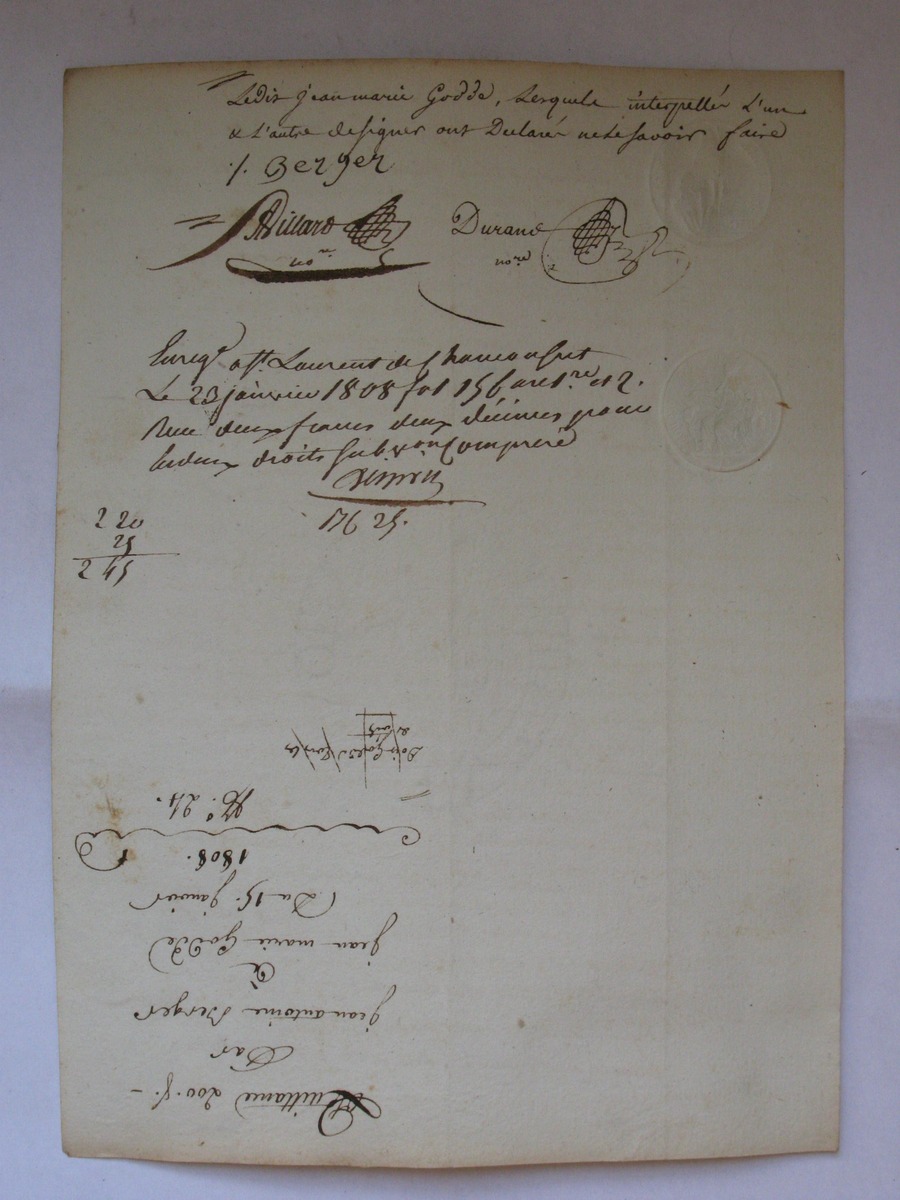 Ledit jean marie Godde, Lesquels interpellés L'un
& L'autre designer ont Declaré ne Le savoir faire
/. Berger
Villard Durand
nore nore
Enregé à St. Laurent de Chamousset
Le 23 janvier 1808 fol 156 rect. cse 1re et 2.
Recu deux francs deux décimes pour
les deux droits subvon Comprise
176 25.
2 20
25
2 45
Quittance 200. f. –
Par
jean antoine Berger
à
jean marie Godde
Du 15. janvier
1808.
No. 24.